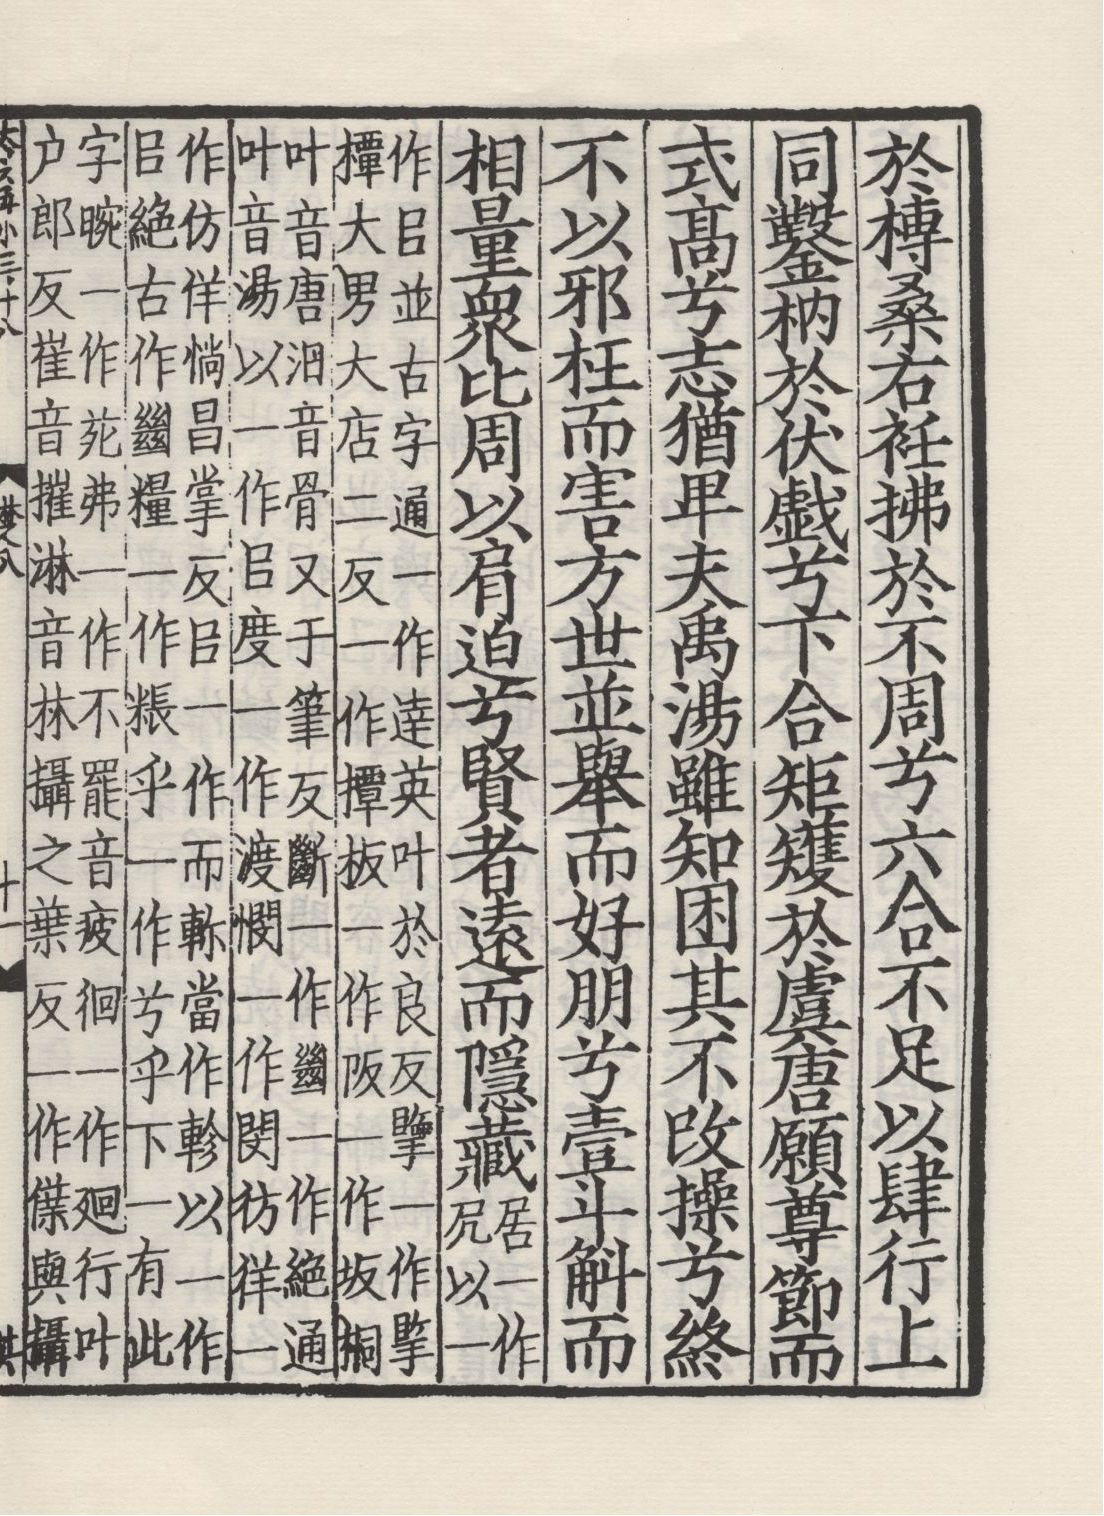 於榑桑右衽拂於不周兮六合不足以肆行上
同鑿枘於伏戲兮下合矩矱於虞唐願尊節而
式髙兮志猶卑夫禹湯雖知困其不改操兮終
不以邪枉而害方世並舉而好朋兮壹斗斛而
相量衆比周以肩迫兮賢者逺而隱藏居一作
凥以一
作㠯並古字通一作逹英叶於良反擥一作掔
橝大男大店二反一作撢板一作阪一作坂榒
叶音唐汨音骨又于筆反斷一作𢇍一作絶通
叶音湯以一作㠯度一作渡憫一作閔彷徉一
作仿佯惝昌掌反㠯一作而軫當作軫以一作
㠯絶古作𢇍糧一作粻乎一作兮乎下一有此
字晼一作菀弗一作不罷音疲徊一作廻行叶
户郎反崔音摧淋音林攝之葉反一作傑與攝
卷六
十一